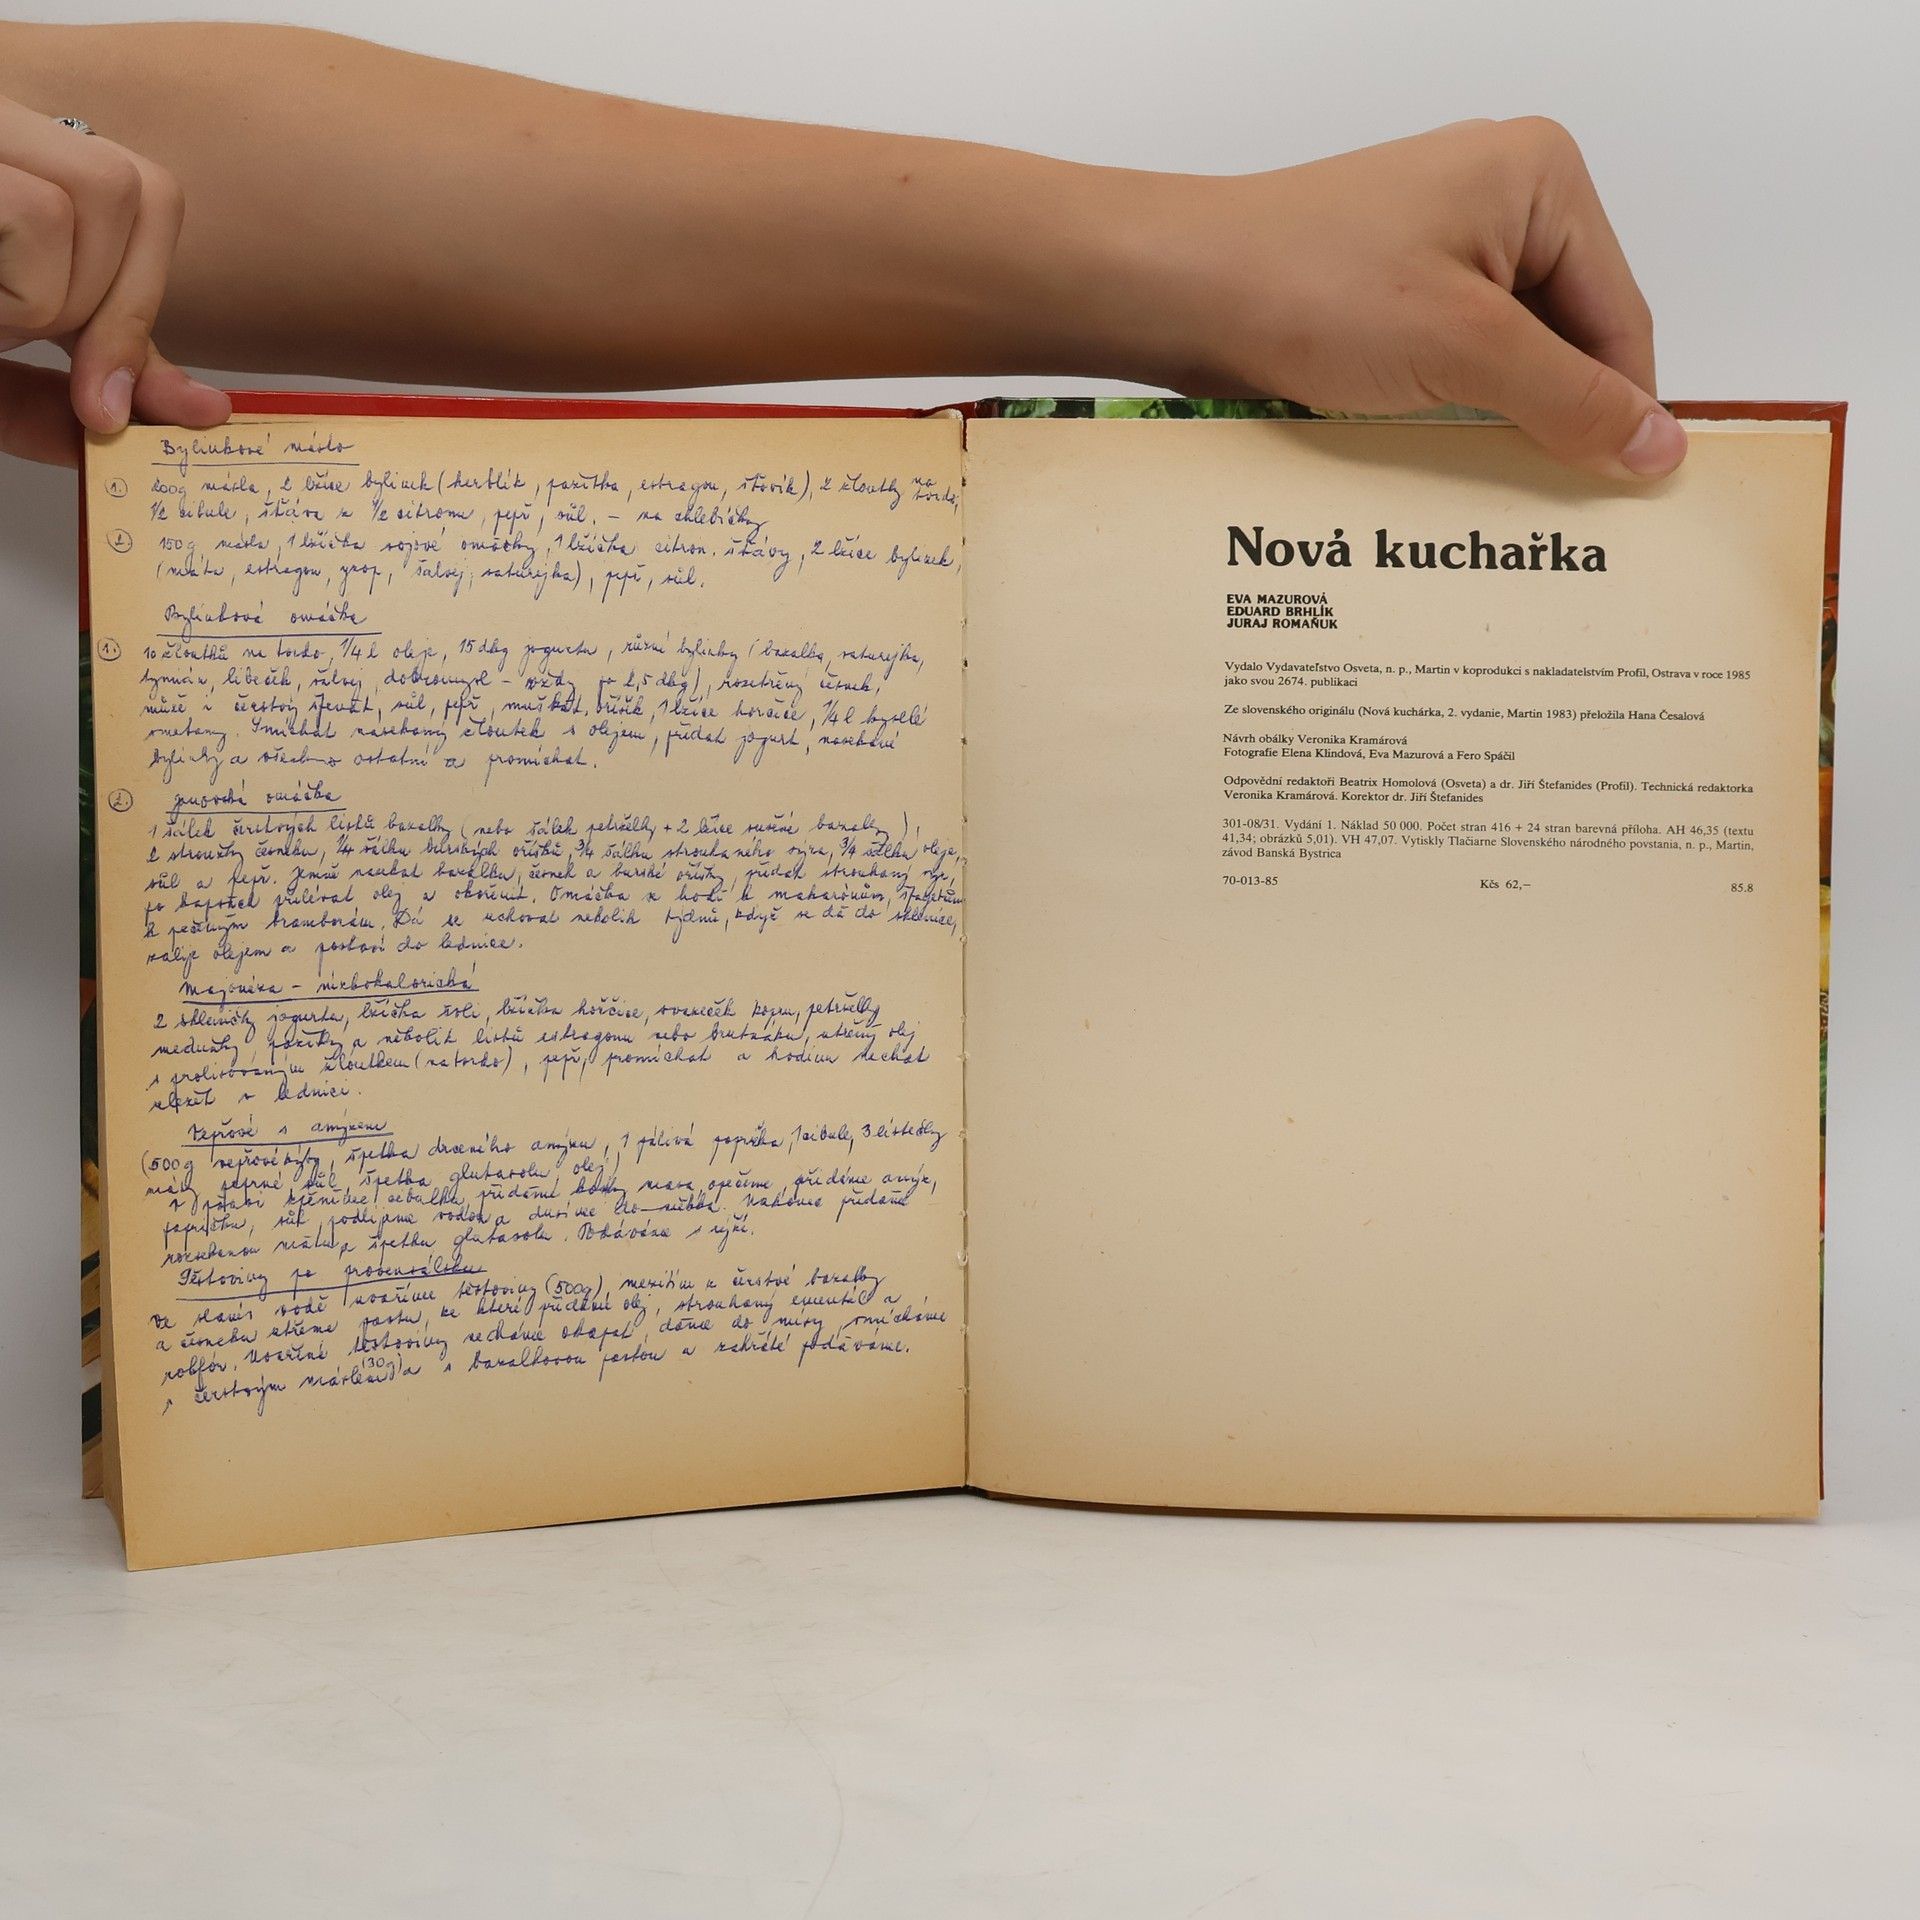 Bylinkové máslo
1. 200g másla, 2 lžíce bylinek (kerblík, pažitka, estragon, šťovík), 2 žloutky na tvrdo,
1/2 cibule, šťáva z 1/2 citronu, pepř, sůl. – na chlebíčky
2. 150g másla, 1 lžička sojové omáčky, 1 lžička citron. šťávy, 2 lžíce bylinek,
(máta, estragon, yzop, šalvěj, saturejka), pepř, sůl.
Bylinková omáčka
1. 10 žloutků na tvrdo, 1/4 l oleje, 15 dkg jogurtu, různé bylinky (bazalka, saturejka,
tymián, libeček, šalvěj, dobromysl – vždy po 2,5 dkg), rozetřený česnek,
může i čerstvý špenát, sůl, pepř, muškát. oříšek, 1 lžíce hořčice, 1/4 l kyselé
smetany. Smíchat nasekaný žloutek s olejem, přidat jogurt, nasekané
bylinky a všechno ostatní a promíchat.
2. Janovská omáčka
1 šálek čerstvých listů bazalky (nebo šálek petržalky + 2 lžíce sušené bazalky),
2 stroužky česneku, 1/4 šálku burských oříšků, 3/4 šálku strouhaného sýra, 3/4 šálku oleje,
sůl a pepř. Jemně nasekat bazalku, česnek a burské oříšky, přidat strouhaný sýr,
po kapkách přilévat olej a okořenit. Omáčka se hodí k makarónům, špagetům
k pečeným bramborám. Dá se uchovat několik týdnů, když se dá do sklenice,
zalije olejem a postaví do lednice.
Majonéza – nízkokalorická
2 skleničky jogurtu, lžička soli, lžička hořčice, svazeček kopru, petržalky
meduňky, pažitky a několik listů estragonu nebo brutnáku, utřený olej
s prolisovaným žloutkem (natvrdo), pepř, promíchat a hodinu nechat
uležet v lednici.
Vepřové s anýzem
(500g vepřové kýty, špetka drceného anýzu, 1 pálivá paprika, 1 cibule, 3 lístečky
máty peprné, sůl, špetka glutasolu, olej)
V pánvi zpěníme cibulku, přidáme kousky masa, opečeme, přidáme anýz,
papričku, sůl, podlijeme vodou a dusíme do měkka. Nakonec přidáme
rozsekanou mátu a špetku glutasolu. Podáváme s rýží.
Těstoviny po provensálsku
Ve slané vodě uvaříme těstoviny (500g), mezitím z čerstvé bazalky
a česneku utřeme pastu, ke které přidáme olej, strouhaný ementál a
rokfór. Uvařené těstoviny necháme okapat, dáme do mísy, smícháme
s čerstvým máslem (30g) a s bazalkovou pastou a zahřáté podáváme.
Nová kuchařka
EVA MAZUROVÁ
EDUARD BRHLÍK
JURAJ ROMAŇUK
Vydalo Vydavateľstvo Osveta, n. p., Martin v koprodukci s nakladatelstvím Profil, Ostrava v roce 1985
jako svou 2674. publikaci
Ze slovenského originálu (Nová kuchárka, 2. vydanie, Martin 1983) přeložila Hana Česalová
Návrh obálky Veronika Kramárová
Fotografie Elena Klindová, Eva Mazurová a Fero Spáčil
Odpovědní redaktoři Beatrix Homolová (Osveta) a dr. Jiří Štefanides (Profil). Technická redaktorka
Veronika Kramárová. Korektor dr. Jiří Štefanides
301-08/31. Vydání 1. Náklad 50 000. Počet stran 416 + 24 stran barevná příloha. AH 46,35 (textu
41,34; obrázků 5,01). VH 47,07. Vytiskly Tlačiarne Slovenského národného povstania, n. p., Martin,
závod Banská Bystrica
70-013-85 Kčs 62,– 85.8